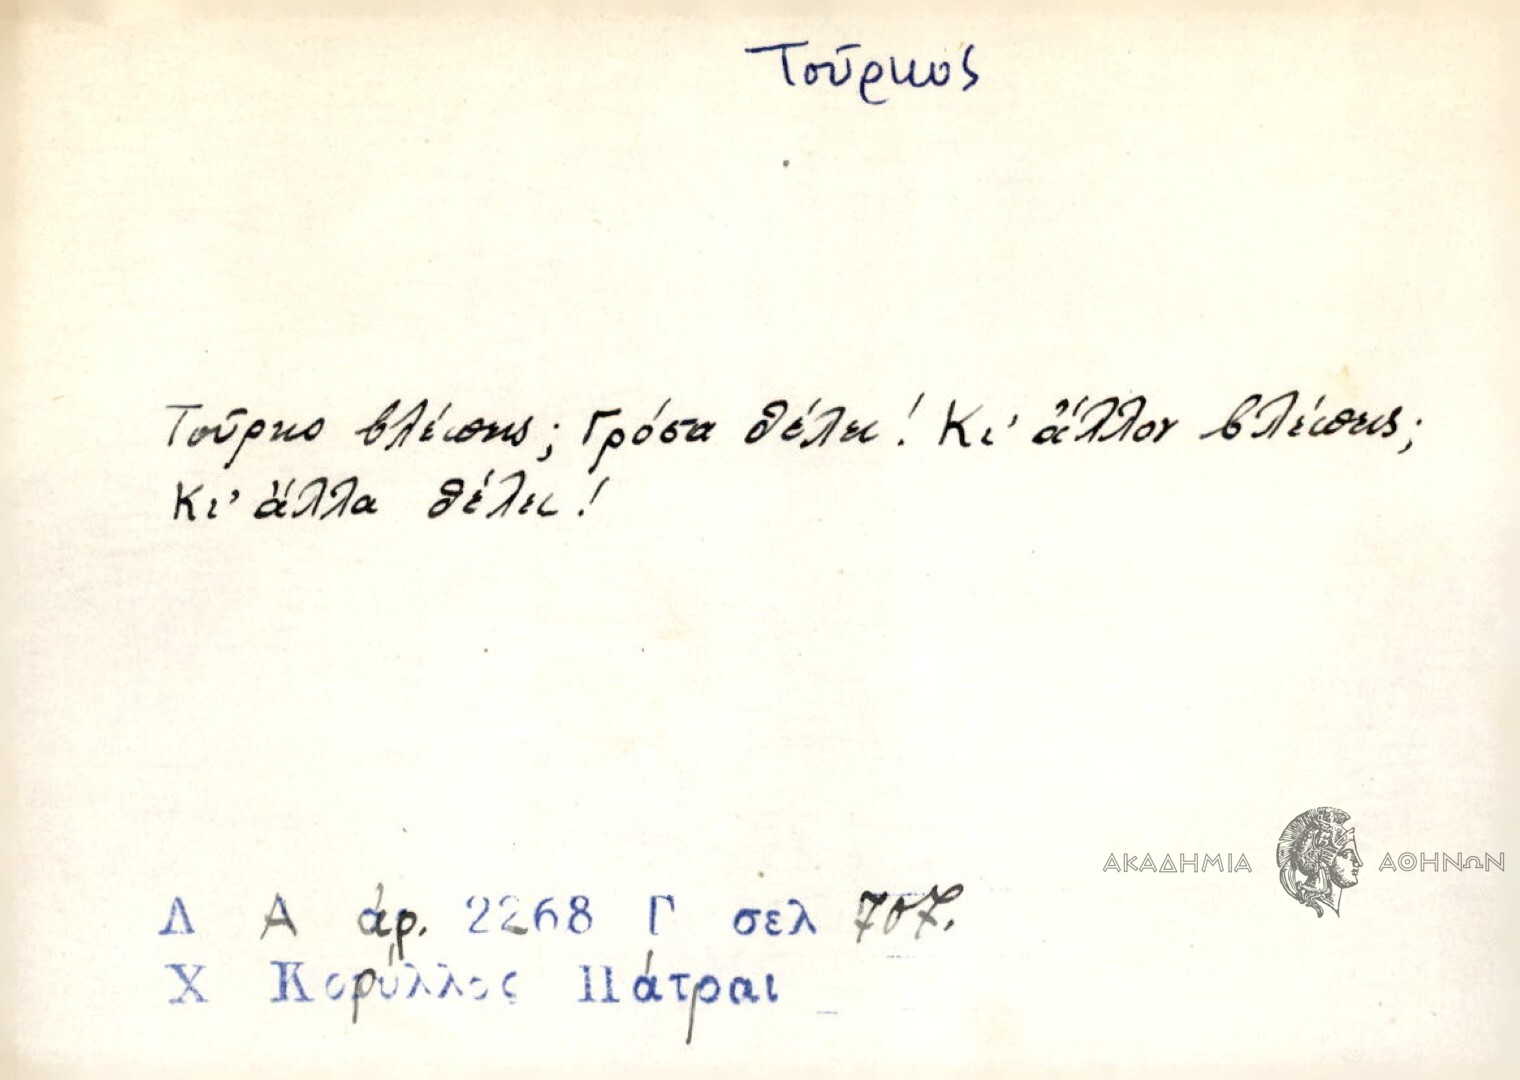 Τοῦρκος
Τοῦρκο βλέπεις; Γρόσα θέλει! Κι' ἄλλον βλέπεις;
Κι' ἄλλα θέλει!
ΑΚΑΔΗΜΙΑ ΑΘΗΝΩΝ
Λ Α ἀρ. 2268 Γ σελ 707.
Χ Κορύλλος Πάτραι